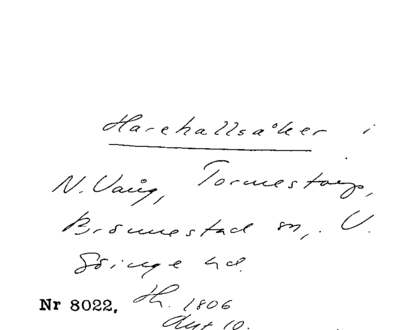 Harehallsåker i
N. Vång, Tormestorp,
Brönnestad sn,. V.
Göinge hd.
Nr 8022, Th. 1806
Akt 10.